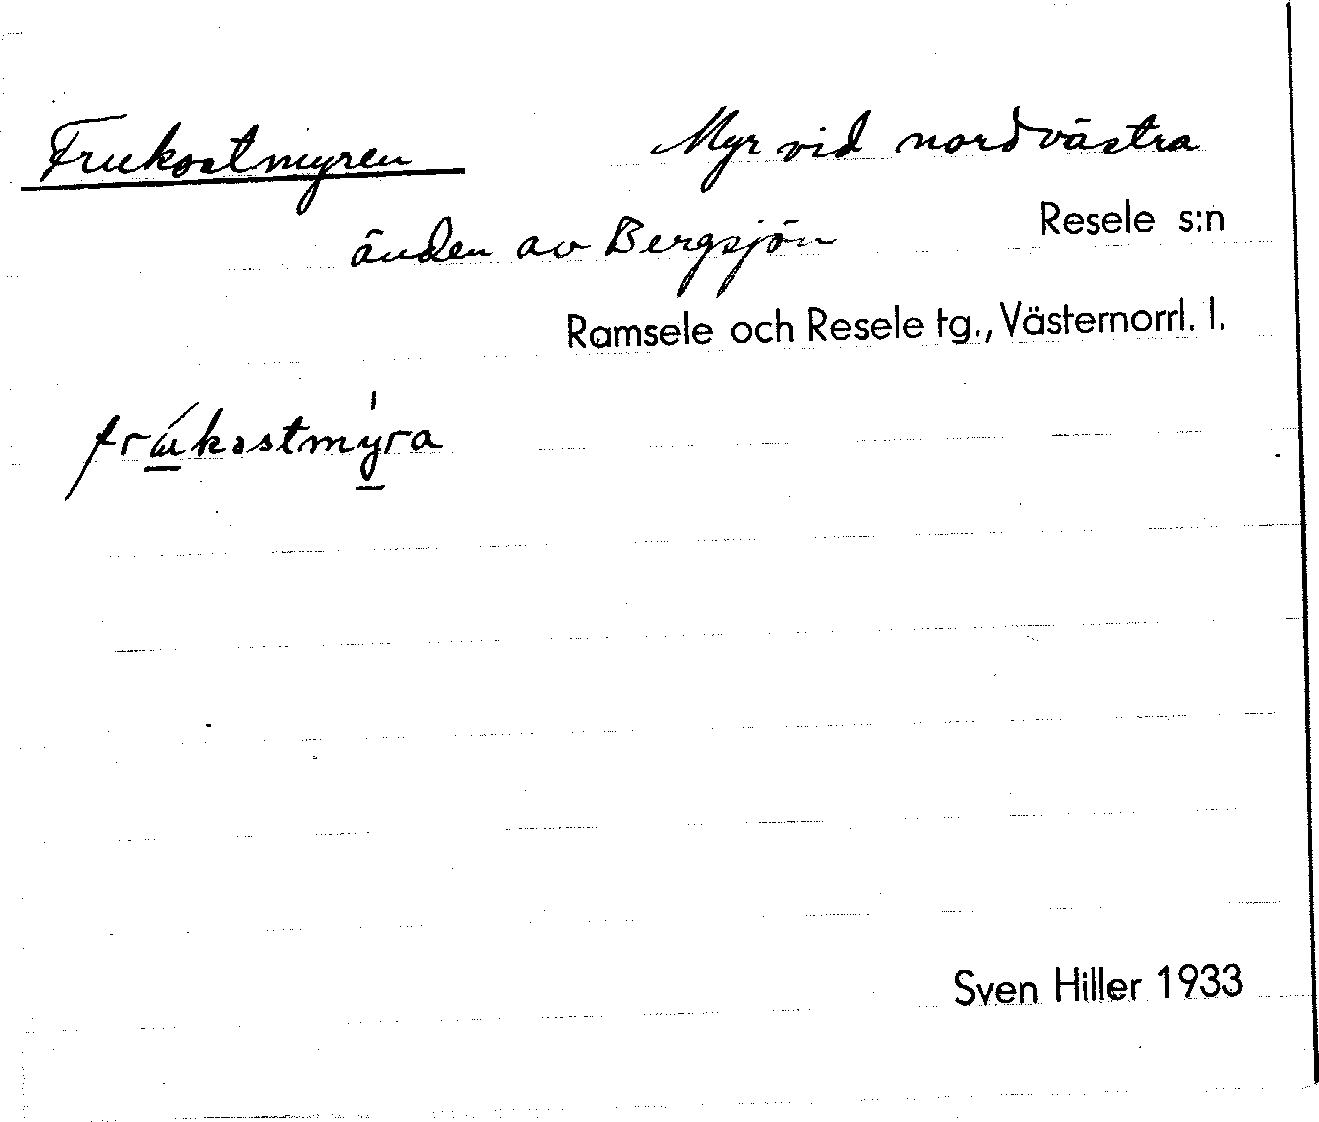 Frukostmyren Myr vid nordvästra
änden av Bergsjön Resele s:n
Ramsele och Resele tg., Västernorrl. l.
frúkostmy̍ra
Sven Hiller 1933